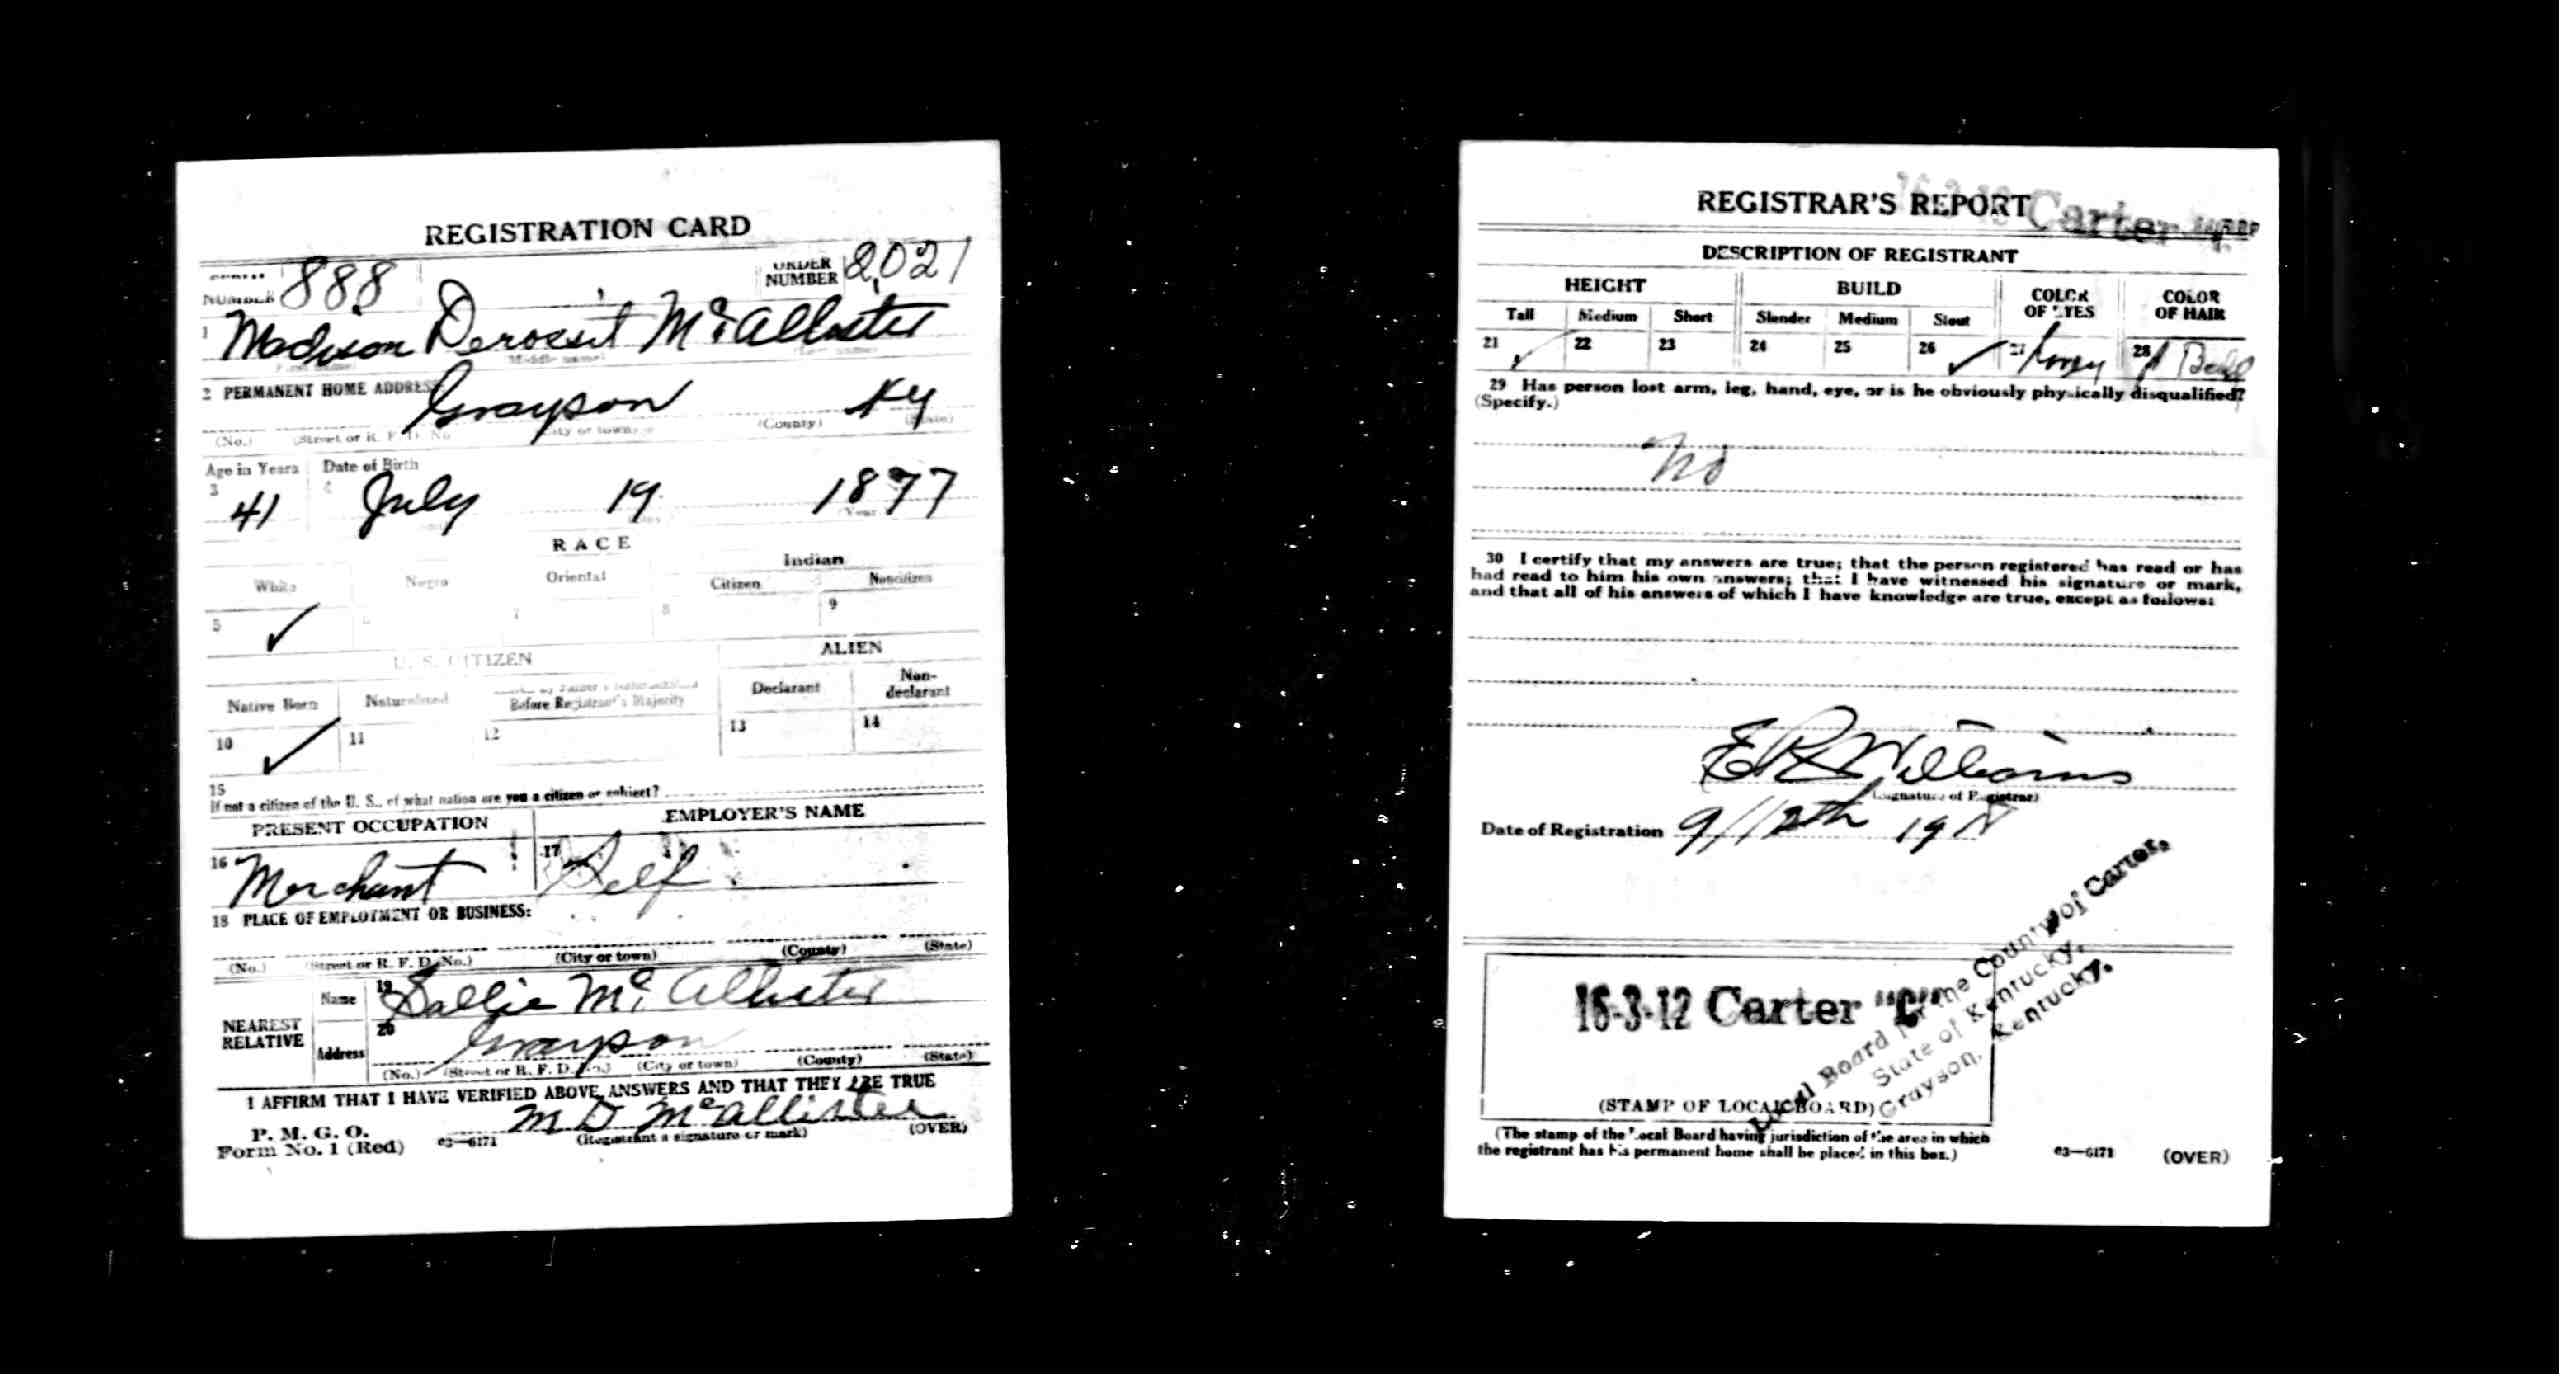 REGISTRATION CARD
NUMBER 888 ORDER NUMBER 2,021
1 Madison McAllister
(Middle name)
2 PERMANENT HOME ADDRESS Grayson Ky
(No.) (Street or R. F. D. No (County) (State)
Age in Years Date of Birth
3 41 4 July 19 1877
Year
RACE
White Negro Oriental Indian
Citizen Noncitizen
5 ✓ 7 8 9
U. S. CITIZEN ALIEN
Native Born Naturalized Before Registrant's Majority Declarant Non-declarant
10 ✓ 11 12 13 14
15
If not a citizen of the U. S., of what nation are you a citizen or subject?
PRESENT OCCUPATION EMPLOYER'S NAME
16 Merchant 17 Self
18 PLACE OF EMPLOYMENT OR BUSINESS:
(No.) (Street or R. F. D. No.) (City or town) (County) (State)
NEAREST RELATIVE
Name 19 Sallie McAllister
Address 20 Grayson
(No.) (Street or R. F. D. No.) (City or town) (County) (State)
I AFFIRM THAT I HAVE VERIFIED ABOVE ANSWERS AND THAT THEY ARE TRUE
P. M. G. O.
Form No. 1 (Red) 03—6171 M D McAllister
(Registrant's signature or mark) (OVER)
REGISTRAR'S REPORT
Carter
DESCRIPTION OF REGISTRANT
HEIGHT BUILD COLOR OF EYES COLOR OF HAIR
Tall Medium Short Slender Medium Stout
21 ✓ 22 23 24 25 26 ✓ 27 28
29 Has person lost arm, leg, hand, eye, or is he obviously physically disqualified?
(Specify.)
No
30 I certify that my answers are true; that the person registered has read or has
had read to him his own answers; that I have witnessed his signature or mark,
and that all of his answers of which I have knowledge are true, except as follows:
E R Williams
(Signature of Registrar)
Date of Registration 9/12th 1918
Local Board for the County of Carter,
State of Kentucky,
Grayson, Kentucky.
16-3-12 Carter "C"
(STAMP OF LOCAL BOARD)
(The stamp of the Local Board having jurisdiction of the area in which
the registrant has his permanent home shall be placed in this box.)
03—6171 (OVER)